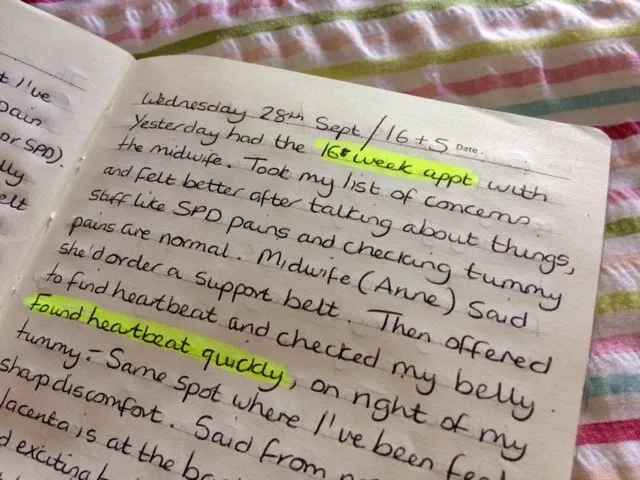 t I've
pain
or SPD).
lly
elt
Wednesday 28th Sept / 16+5 Date.
Yesterday had the 16 week appt with
the midwife. Took my list of concerns
and felt better after talking about things,
stuff like SPD pains and checking tummy
pains are normal. Midwife (Anne) said
she'd order a support belt. Then offered
to find heartbeat and checked my belly.
Found heartbeat quickly, on right of my
tummy - same spot where I've been feel
sharp discomfort. Said from
lacenta is at the ba
d exciting